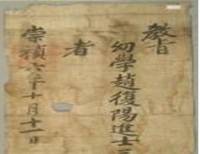 敎旨
幼學趙復陽進士三
者
崇禎六年十月十一日